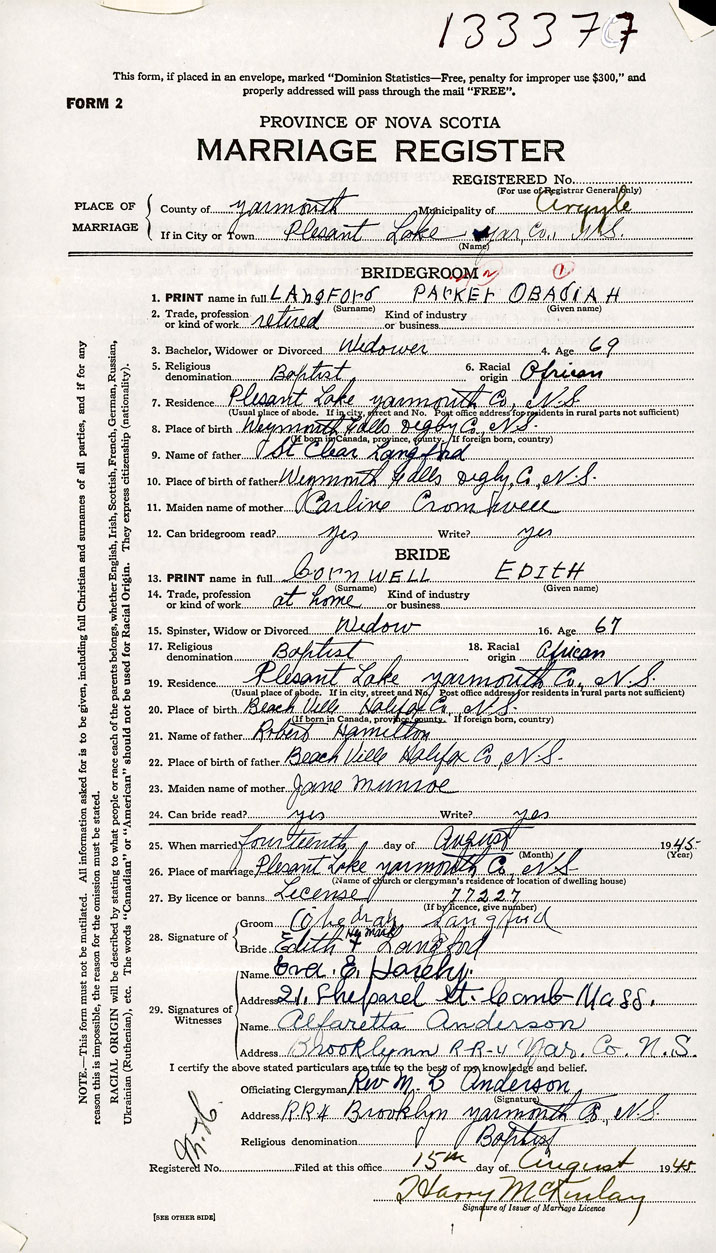 133377
This form, if placed in an envelope, marked "Dominion Statistics—Free, penalty for improper use $300," and
properly addressed will pass through the mail "FREE".
FORM 2
PROVINCE OF NOVA SCOTIA
MARRIAGE REGISTER
REGISTERED No.
(For use of Registrar General only)
PLACE OF MARRIAGE
County of yarmouth Municipality of Argyle
If in City or Town Plesant Lake yar, Co., N.S.
(Name)
BRIDEGROOM 2 1
1. PRINT name in full LANgFORD PARKER OBADIAH
(Surname) (Given name)
2. Trade, profession or kind of work retired Kind of industry or business
3. Bachelor, Widower or Divorced Widower 4. Age 69
5. Religious denomination Baptist 6. Racial origin African
7. Residence Plesant Lake yarmouth Co., N.S.
(Usual place of abode. If in city, street and No. Post office address for residents in rural parts not sufficient)
8. Place of birth Weymouth Falls Digby Co., N.S.
(If born in Canada, province, county. If foreign born, country)
9. Name of father St Clear Langford
10. Place of birth of father Weymouth Falls Digby, Co, N.S.
11. Maiden name of mother Carline
12. Can bridegroom read? yes Write? yes
BRIDE
13. PRINT name in full CornWELL EDITH
(Surname) (Given name)
14. Trade, profession or kind of work at home Kind of industry or business
15. Spinster, Widow or Divorced Widow 16. Age 67
17. Religious denomination Baptist 18. Racial origin African
19. Residence Plesant Lake yarmouth Co., N.S.
(Usual place of abode. If in city, street and No. Post office address for residents in rural parts not sufficient)
20. Place of birth Beach Ville Halifax Co, N.S.
(If born in Canada, province, county. If foreign born, country)
21. Name of father Robert Hamilton
22. Place of birth of father Beach Ville Halifax Co, N.S.
23. Maiden name of mother Jane Munroe
24. Can bride read? yes Write? yes
25. When married fourteenth day of August 1945
(Month) (Year)
26. Place of marriage Plesant Lake yarmouth Co, N.S
(Name of church or clergyman's residence or location of dwelling house)
27. By licence or banns License 77227
(If by licence, give number)
28. Signature of
Groom Langford
her mark
Bride Edith x Langford
29. Signatures of Witnesses
Name Eva. E.
Address 21. Shepard St. Camb- Mass.
Name Alfaretta Anderson
Address Brooklynn R-R-4 Yar. Co. N.S.
I certify the above stated particulars are true to the best of my knowledge and belief.
Officiating Clergyman Rev M. L Anderson
(Signature)
Address R.R.4 Brooklyn yarmouth Co, N.S.
Religious denomination Baptist
Registered No. Filed at this office 15th day of August 1945
Harry McKinlay
Signature of Issuer of Marriage Licence
[SEE OTHER SIDE]
NOTE.—This form must not be mutilated. All information asked for is to be given, including full Christian and surnames of all parties, and if for any
reason this is impossible, the reason for the omission must be stated.
RACIAL ORIGIN will be described by stating to what people or race each of the parents belongs, whether English, Irish, Scottish, French, German, Russian,
Ukrainian (Ruthenian), etc. The words "Canadian" or "American" should not be used for Racial Origin. They express citizenship (nationality).